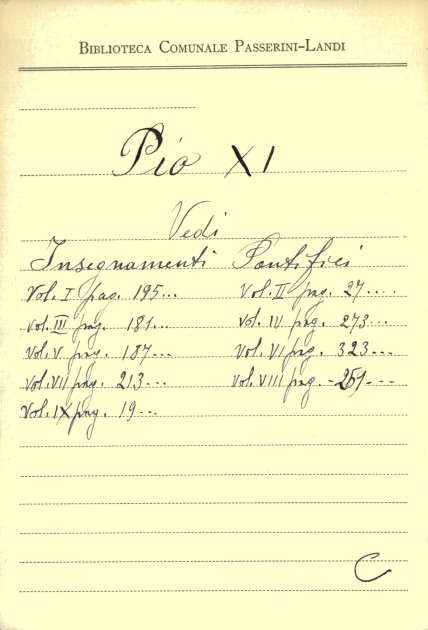 BIBLIOTECA COMUNALE PASSERINI-LANDI
Pio XI
Vedi
Insegnamenti Pontifici
Vol. I pag. 195... Vol. II pag. 27....
Vol. III pag. 181... Vol. IV pag. 273...
Vol. V pag. 187... Vol. VI pag. 323...
Vol. VII pag. 213... Vol. VIII pag. -259---
Vol. IX pag. 19...
C